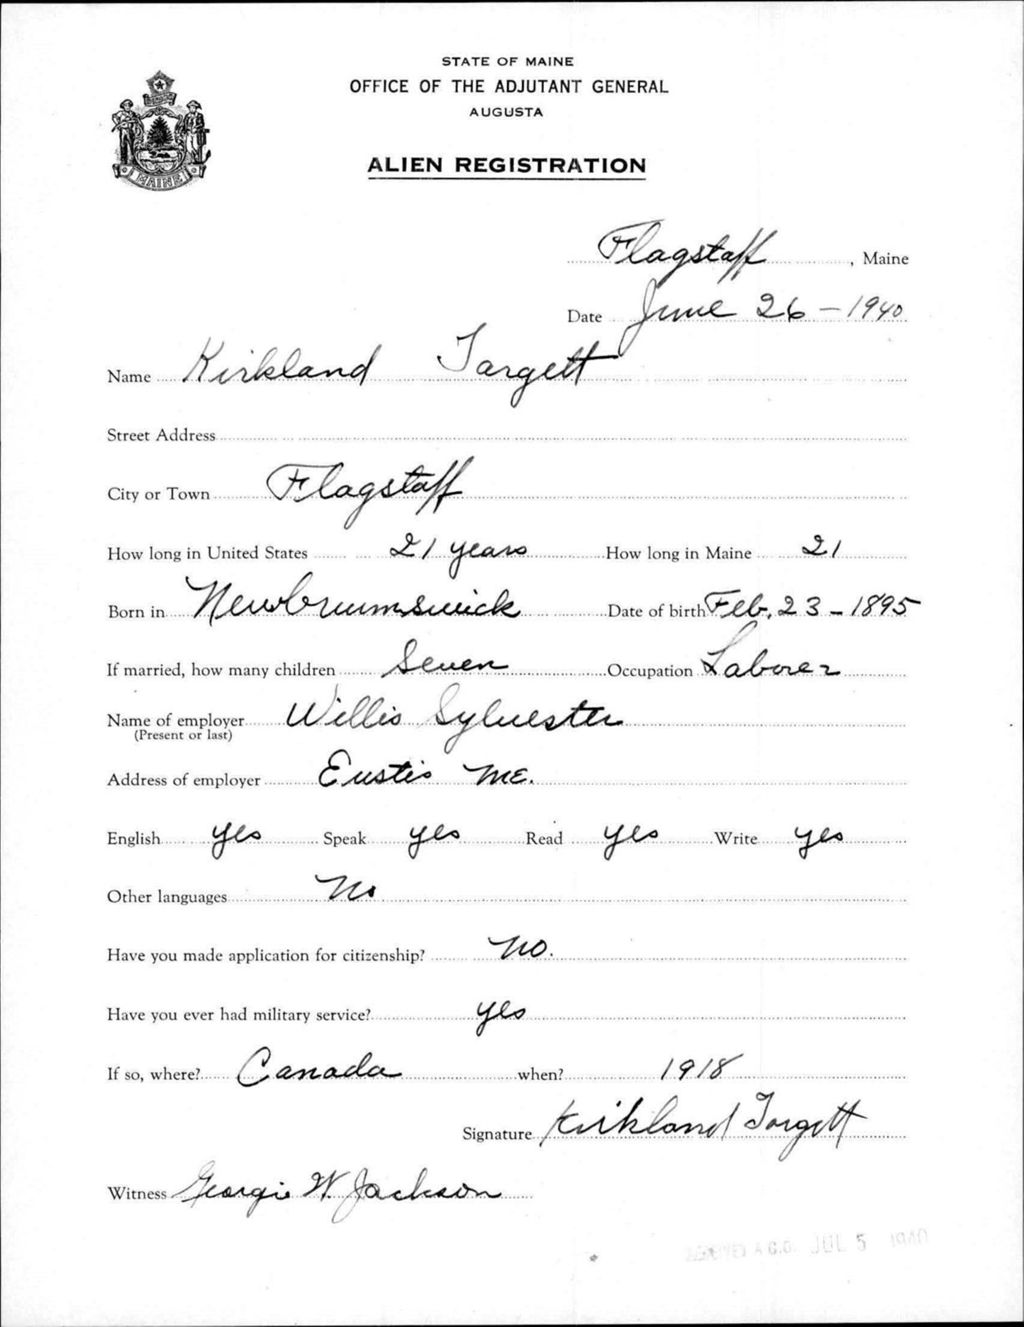 STATE OF MAINE
OFFICE OF THE ADJUTANT GENERAL
AUGUSTA
ALIEN REGISTRATION
MAINE
Flagstaff, Maine
Date June 26 - 1940
Name Kirkland Targett
Street Address
City or Town Flagstaff
How long in United States 21 years How long in Maine 21
Born in Newbrumswick Date of birth Feb. 23 - 1895
If married, how many children Seven Occupation Laborer
Name of employer Willis Sylvester
(Present or last)
Address of employer Eustis ME.
English yes Speak yes Read yes Write yes
Other languages No
Have you made application for citizenship? NO.
Have you ever had military service? yes
If so, where? Canada when? 1918
Signature Kirkland Targett
Witness Georgie W. Jackson
A.G.O. JUL 5 1940